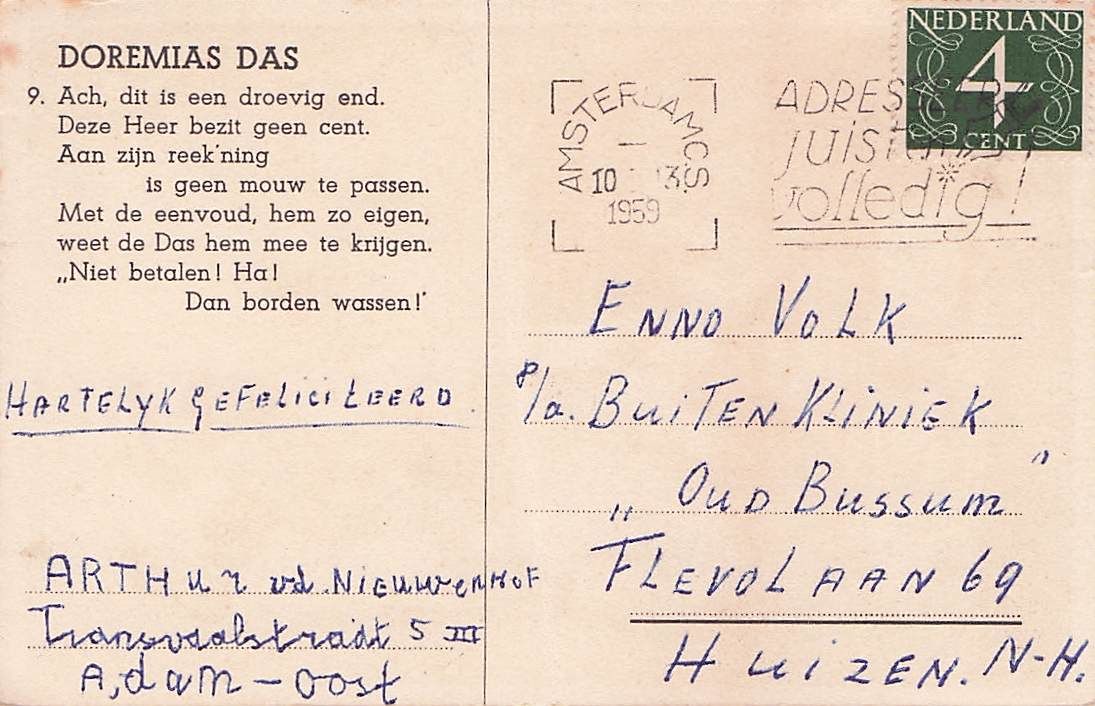 DOREMIAS DAS
9. Ach, dit is een droevig end.
Deze Heer bezit geen cent.
Aan zijn reek'ning
is geen mouw te passen.
Met de eenvoud, hem zo eigen,
weet de Das hem mee te krijgen.
„Niet betalen! Ha!
Dan borden wassen!'
HARTELYK GEFELICITEERD.
ARTHUR vd. NIEUWENHOF
Transvaalstraat 5 III
A,dam - oost
NEDERLAND
4
CENT
AMSTERDAM C.S
10
1959
juist
volledig!
ENNO VOLK
P/a. BUITEN KLINIEK
„ OUD BUSSUM "
FLEVOLAAN 69
HUIZEN. N-H.